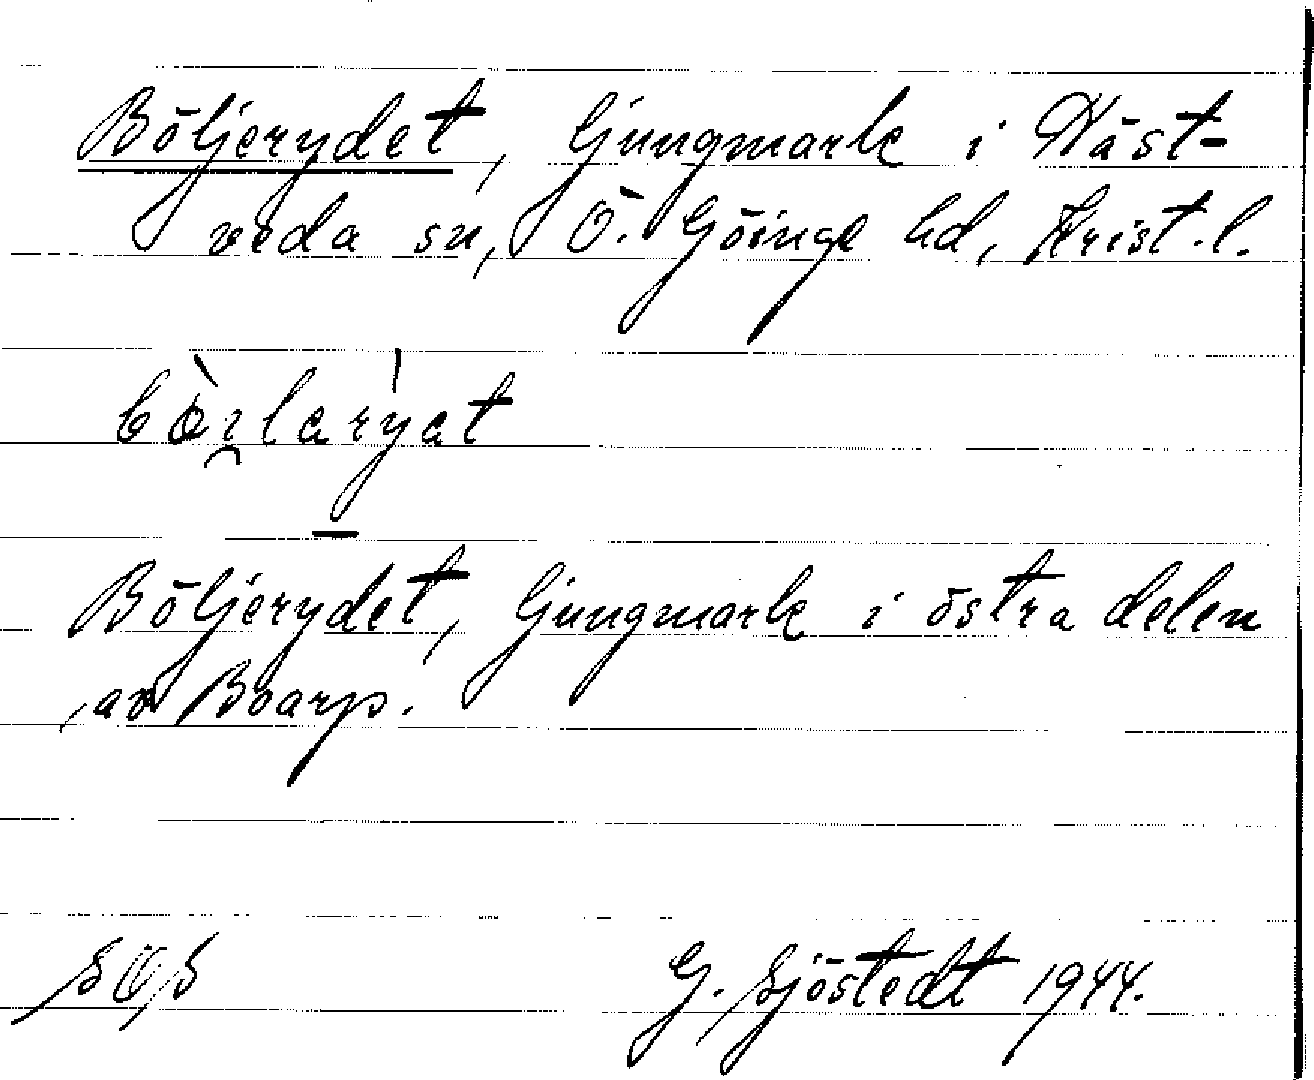 Böljerydet, ljungmark i Häst-
veda sn, Ö. Göinge hd, Krist. l.
Böljerydet, ljungmark i östra delen
av Boarp.
G. Sjöstedt 1944.